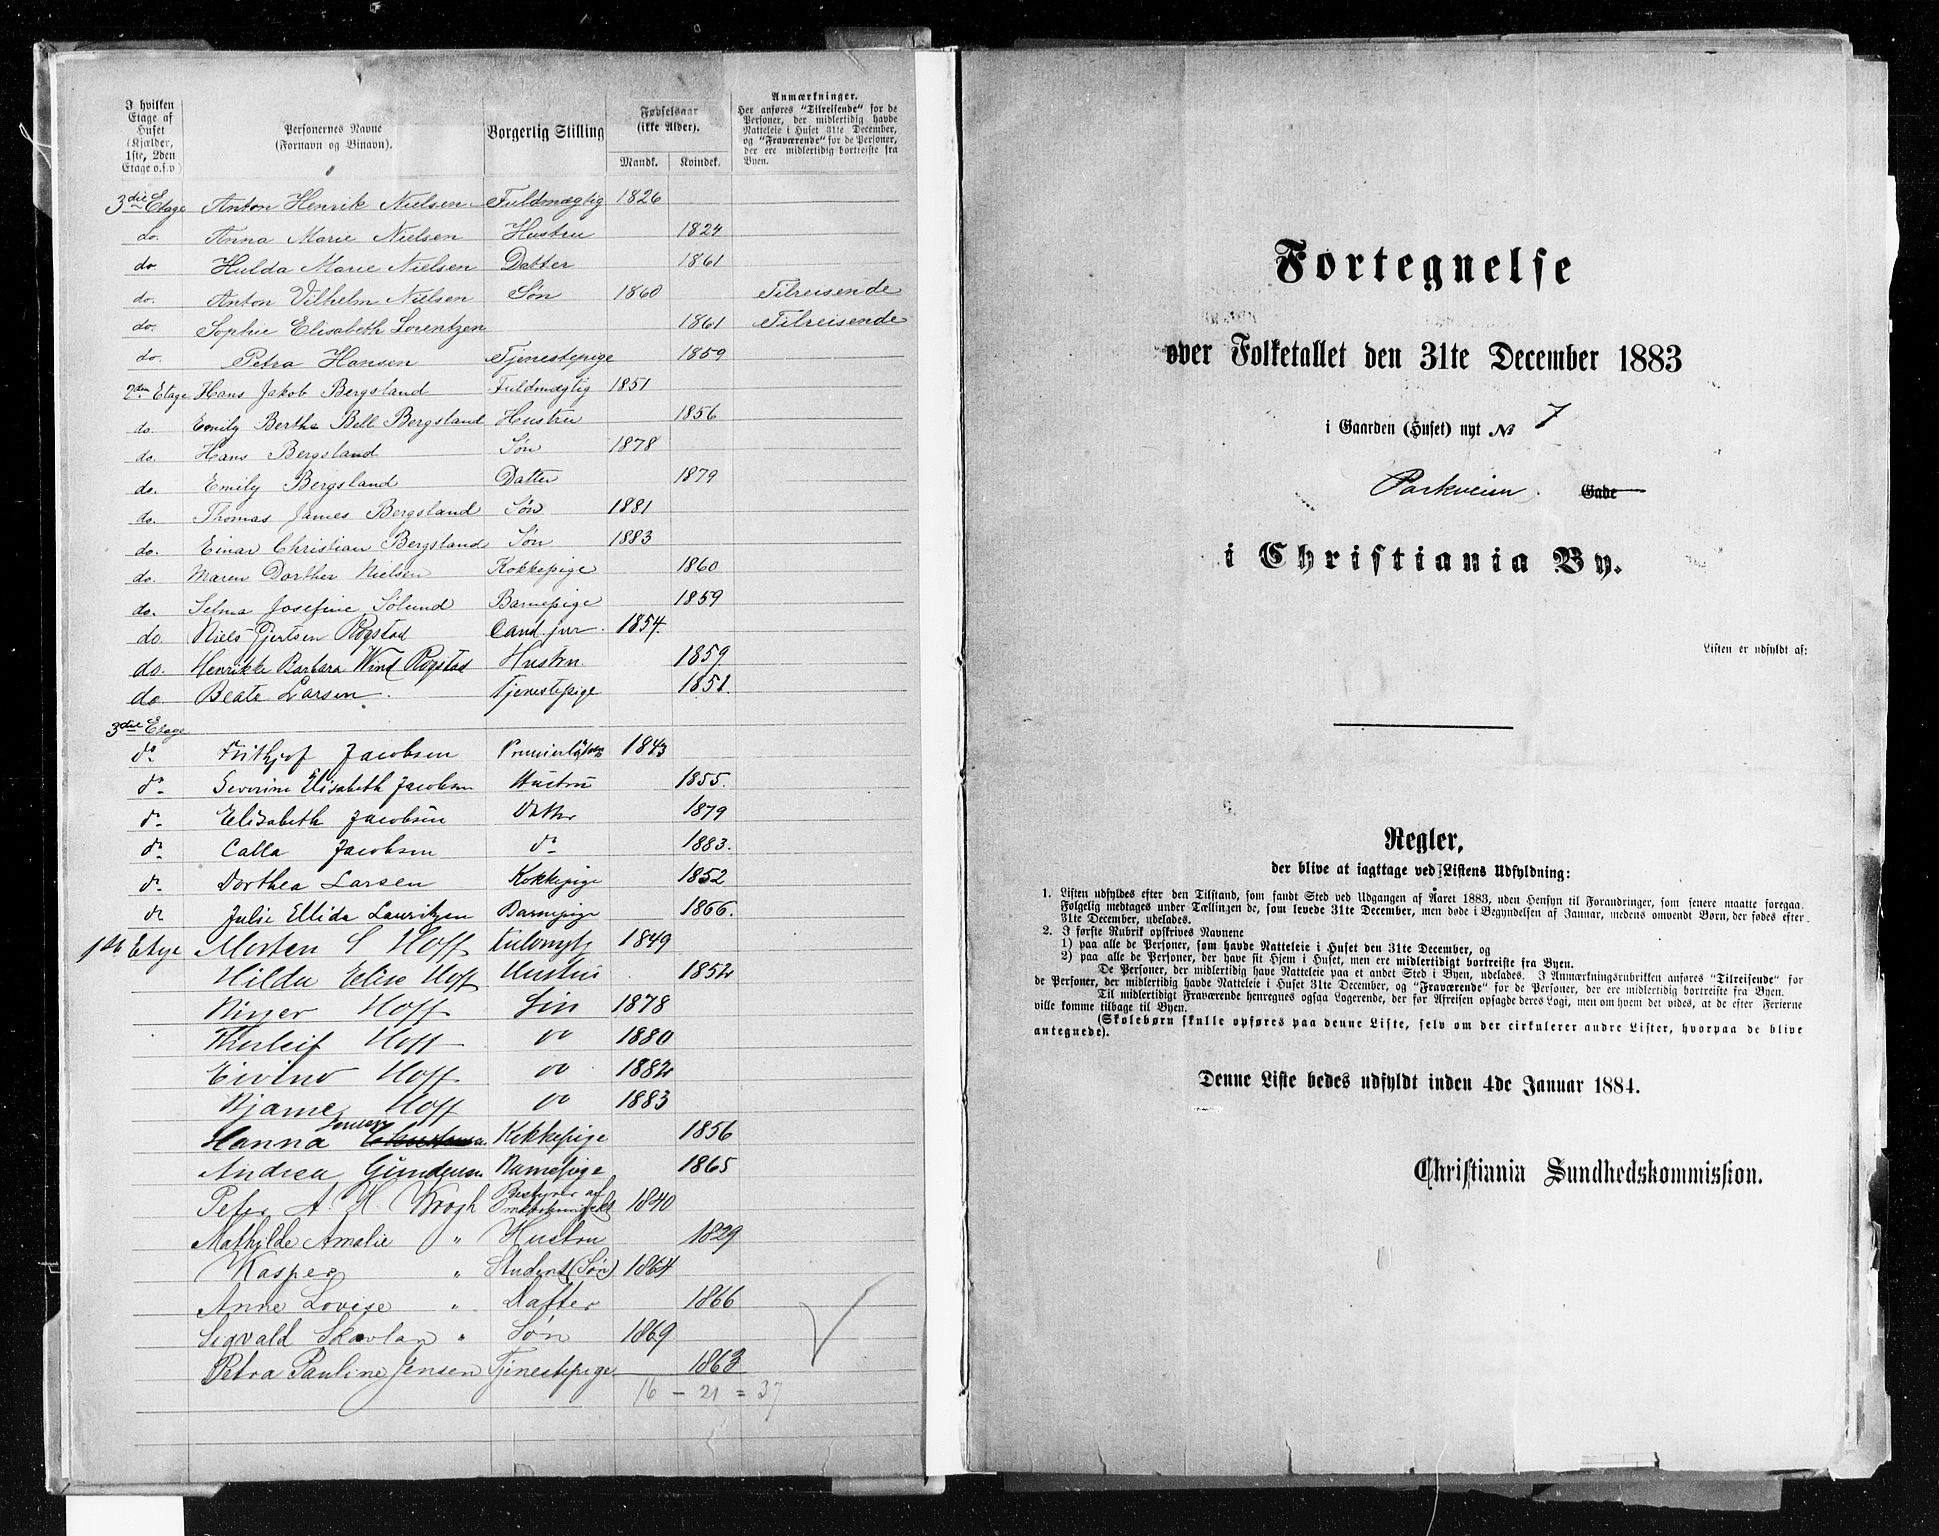 I hvilken
Etage af
Huset
(Kjælder,
1ste, 2den
Etage o.s.v)
Personernes Navne
(Fornavn og Binavn).
Borgerlig Stilling
Fødselsaar
(ikke Alder).
Mandk. Kvindek.
Anmærkninger.
Her anføres "Tilreisende" for de
Personer, der midlertidig havde
Natteleie i Huset 31te December,
og "Fraværende" for de Personer,
der ere midlertidig bortreiste fra
Byen.
3die Etage Anton Henrik Nielsen Fuldmægtig 1826
do. Anna Marie Nielsen Hustru 1824
do Hulda Marie Nielsen Datter 1861
do. Anton Vilhelm Nielsen Søn 1860 Tilreisende
do. Sophie Elisabeth Lorentzen 1861 Tilreisende
do. Petra Hansen Tjenestepige 1859
2den Etage Hans Jakob Bergsland Fuldmægtig 1851
do. Emily Berthe Bell Bergsland Hustru 1856
do. Hans Bergsland Søn 1878
do. Emily Bergsland Datter 1879
do. Thomas James Bergsland Søn 1881
do. Einar Christian Bergsland Søn 1883
do. Maren Dorthea Nielsen Kokkepige 1860
do. Selma Josefine Sølund Barnepige 1859
do. Niels Gjertsen Rogstad Cand. jur. 1854.
do. Henrikke Barbara Wind Rogstad Hustru. 1859.
do Beate Larsen. Tjenestepige 1851.
3die Etage
do Frithjof Jacobsen Premierløitn 1843
do Severine Elisabeth Jacobsen Hustru 1855.
do Elisabeth Jacobsen Datter 1879
do Calla Jacobsen do 1883.
do Dorthea Larsen Kokkepige 1852
do Julie Ellida Lauritzen Barnepige 1866.
1ste Etage Morten S Hoff Fuldmgtg 1849
Hilda Elise Hoff Hustru 1852
Birger Hoff Søn 1878
Thorleif Hoff do 1880
Eivind Hoff do 1882
Bjarne Hoff do 1883
Hanna Jensen Kokkepige 1856
Andrea Gundersen Barnepige 1865
Peter A. H. Krogh Bestyrer af 1840
Mathilde Amalie " Hustru 1829
Kasper " Student (Søn) 1864
Anne Lovise " Datter 1866
Sigvald Skavlan " Søn 1869
Petra Pauline Jensen Tjenestepige 1863
16 - 21 = 37
Fortegnelse
over Folketallet den 31te December 1883
i Gaarden (Huset) nyt № 7
Parkveien. Gade
i Christiania By.
Listen er udfyldt af:
Regler,
der blive at iagttage ved Listens Udfyldning:
1. Listen udfyldes efter den Tilstand, som fandt Sted ved Udgangen af Året 1883, uden Hensyn til Forandringer, som senere maatte foregaa.
Følgelig medtages under Tællingen de, som levede 31te December, men døde i Begyndelsen af Januar, medens omvendt Børn, der fødes efter
31te December, udelades.
2. I første Rubrik opskrives Navnene
1) paa alle de Personer, som havde Natteleie i Huset den 31te December, og
2) paa alle de Personer, der have sit Hjem i Huset, men ere midlertidigt bortreiste fra Byen.
De Personer, der midlertidig have Natteleie paa et andet Sted i Byen, udelades. I Anmærkningsrubrikken anføres "Tilreisende" for
de Personer, der midlertidig havde Natteleie i Huset 31te December, og "Fraværende" for de Personer, der ere midlertidig bortreiste fra Byen.
Til midlertidigt Fraværende henregnes ogsaa Logerende, der før Afreisen opsagde deres Logi, men om hvem det vides, at de efter Ferierne
ville komme tilbage til Byen.
(Skolebørn skulle opføres paa denne Liste, selv om der cirkulerer andre Lister, hvorpaa de blive
antegnede).
Denne Liste bedes udfyldt inden 4de Januar 1884.
Christiania Sundhedskommission.